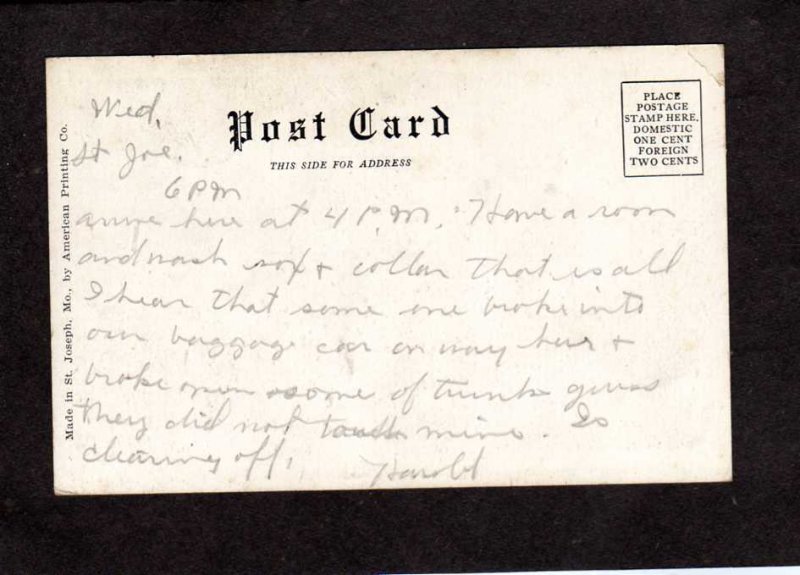 Wed,
St Joe.
6 PM
Post Card
THIS SIDE FOR ADDRESS
PLACE
POSTAGE
STAMP HERE.
DOMESTIC
ONE CENT
FOREIGN
TWO CENTS
Made in St. Joseph, Mo., by American Printing Co.
arrive here at 4 P.M. Have a room
and wash sox + collar that is all
I hear that some one broke into
our baggage car on way here +
broke open some of trunks guess
they did not touch mine. Is
clearing off.
Harold